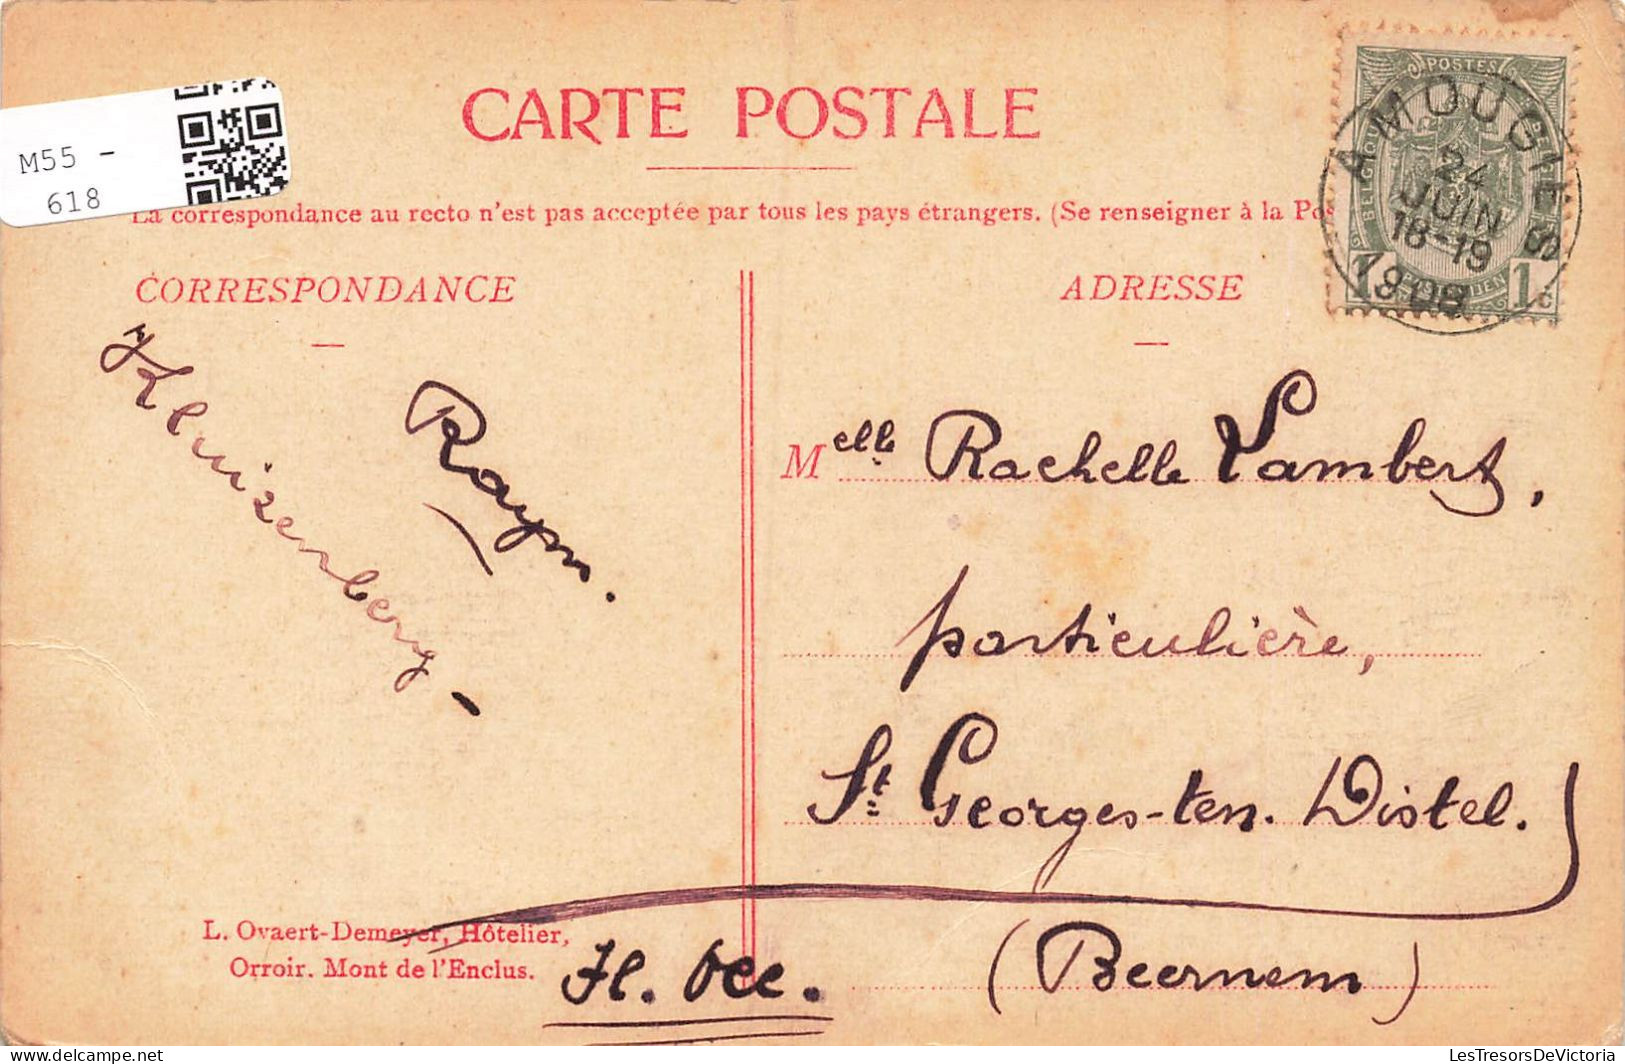 M55 -
618
CARTE POSTALE
La correspondance au recto n'est pas acceptée par tous les pays étrangers. (Se renseigner à la Pos
POSTES
AMOUGIES
24
JUIN
18-19
1908
1 1c
CORRESPONDANCE
ADRESSE
Kluizenberg -
Raym.
Melle Rachelle Lambert,
particulière,
St Georges-ten. Distel.
(Beernem)
Fl. Occ.
L. Ovaert-Demeyer, Hôtelier,
Orroir. Mont de l'Enclus.
LesTresorsDeVictoria
www.delcampe.net